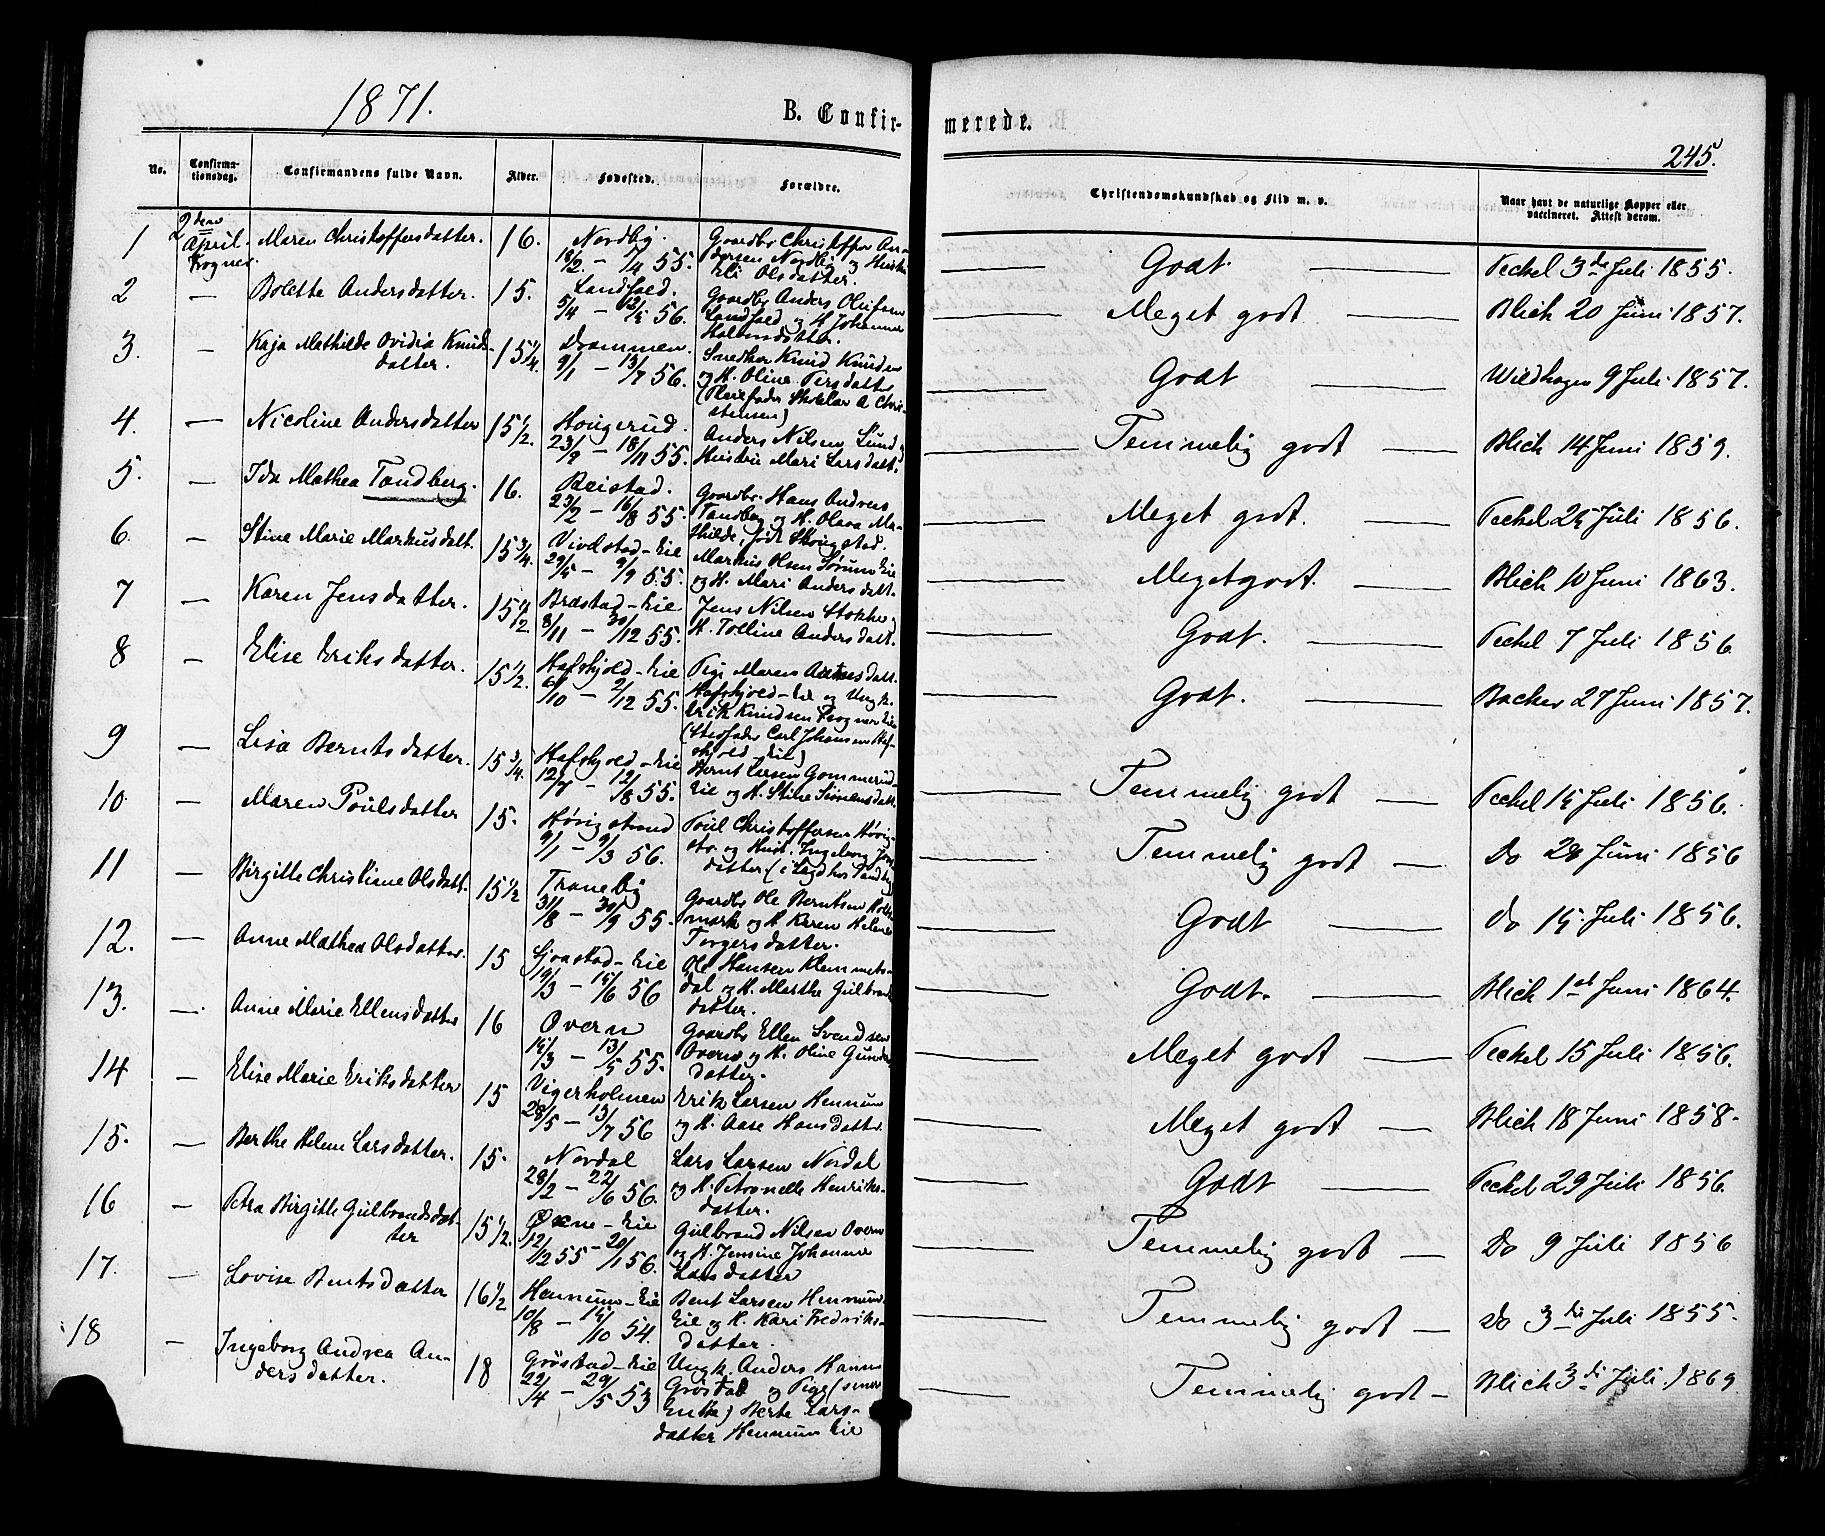 1871.
B. Confir-
merede.
245.
No.
Confirma-
tionsdag.
Confirmandens fulde Navn.
Alder.
Fødested.
Forældre.
Christendomskundskab og Flid m. v.
Naar havt de naturlige Kopper eller
vaccineret. Attest derom.
1 2den April. Maren Christoffersdatter. 16. Nordby.
18/2 – 9/4 55.
Gaardbr Christoffer An-
dersen Nordby og Hustru
Eli Olsdatter.
Godt. Teckel 3die Juli 1855.
2 — Bolette Andersdatter. 15. Landfald.
5/4 – 12/5 56.
Gaardbr Anders Olufsen
Landfald og H Johanne
Meget godt Blich 20 Juni 1857.
3. — Kaja Mathilde Ovidia Knuds-
datter. 15 1/4. Drammen.
9/1 – 13/7 56.
Snedker Knud Knudsen
og H. Oline Persdatter
(Pleiefader Skolelær A Chri-
stensen)
Godt Wildhagen 9 Juli 1857.
4. — Nicoline Andersdatter 15 1/2. Hougerud.
23/9 – 18/11 55.
Anders Nilsen Lund og
Hustru Mari Larsdatt.
Temmelig godt Blich 14 Juni 1859.
5. — Ida Mathea Tandberg. 16. Reistad.
23/2 – 16/8 55.
Gaardbr. Hans Andreas
Tandberg og H. Olava Ma-
thilde, født Skougstad.
Meget godt. Teckel 25 Juli 1856.
6. — Stine Marie Markusdatt. 15 3/4. Vivelstad-Eie
29/5 – 9/9 55.
Markus Olsen Sørum Eie
og H. Mari Andersdatt.
Meget godt. Blich 10 Juni 1863.
7 — Karen Jensdatter. 15 1/2. Brastad-Eie
8/11 – 30/12 55.
Jens Nilsen Stokke og
H. Tolline Andersdatt.
Godt. Teckel 7 Juli 1856
8 — Elise Eriksdatter. 15 1/2. Hafskjold-Eie
6/10 – 2/12 55.
Pige Maren Andersdatt.
Hafskjold-Eie og Ungk.
Erik Knudsen Frogner Eie
(Stedfader Carl Johansen Haf-
skjold-Eie)
Godt. Backer 27 Juni 1857.
9 — Lisa Berntsdatter. 15 3/4. Hafskjold-Eie
12/7 – 12/8 55.
Bernt Larsen Gommerud-
Eie og H. Stine Simensdatt.
Temmelig godt Teckel 15 Juli 1856.
10. — Maren Poulsdatter 15. Høvigstrand
9/1 – 9/3 56.
Poul Christoffersen Høvig-
str. og Hust. Ingeborg Jons
datter
Temmelig godt Do 28 Juni 1856
11 — Birgitte Christiane Olsdatt. 15 1/2 Traneby
31/8 – 30/9 55.
Gaardbr Ole Berntsen Holts-
mark og H. Karen Helene
Torgersdatter.
Godt Do 15 Juli 1856.
12. — Anne Mathea Olsdatter. 15 Sjaastad-Eie
19/3 – 15/6 56
Ole Hansen Klemmets-
dal og H. Marthe Gulbrands
datter.
Godt. Blich 1ste Juni 1864.
13. — Anne Marie Ellensdatter 16 Overn
15/3 – 13/5 55.
Gaardbr Ellen Svendsen
Overn og H. Oline Gunders
datter.
Meget godt Teckel 15 Juli 1856.
14 — Elise Marie Eriksdatter 15 Vigerholmen
28/5 – 13/7 56
Erik Larsen Hennum
og H. Aase Hansdatter.
Meget godt Blich 18 Juni 1858.
15. — Berthe Helene Larsdatter. 15. Nordal
28/2 – 22/6 56.
Lars Larsen Nordal
og H. Petronelle Henriks-
datter.
Godt Teckel 29 Juli 1856.
16 — Petra Birgitte Gulbrandsdat-
ter 15 1/2. Øxne-Eie
12/12 55 – 20/1 56.
Gulbrand Nilsen Overn
og H. Jensine Johanne
Larsdatter
Temmelig godt Do 9 Juli 1856
17. — Lovise Bentsdatter 16 1/2 Hennum-Eie
10/8 – 14/10 54.
Bent Larsen Hennum
Eie og H. Kari Fredriks-
datter.
Temmelig godt Do 3die Juli 1855.
18 — Ingeborg Andrea An-
dersdatter. 18 Grøstad-Eie
22/4 – 29/5 53
Ungk. Anders Hansen
Grøsdal og Pige (senere
Enke) Berte Lars-
datter Hennum Eie
Temmelig godt Blich 3die Juli 1869